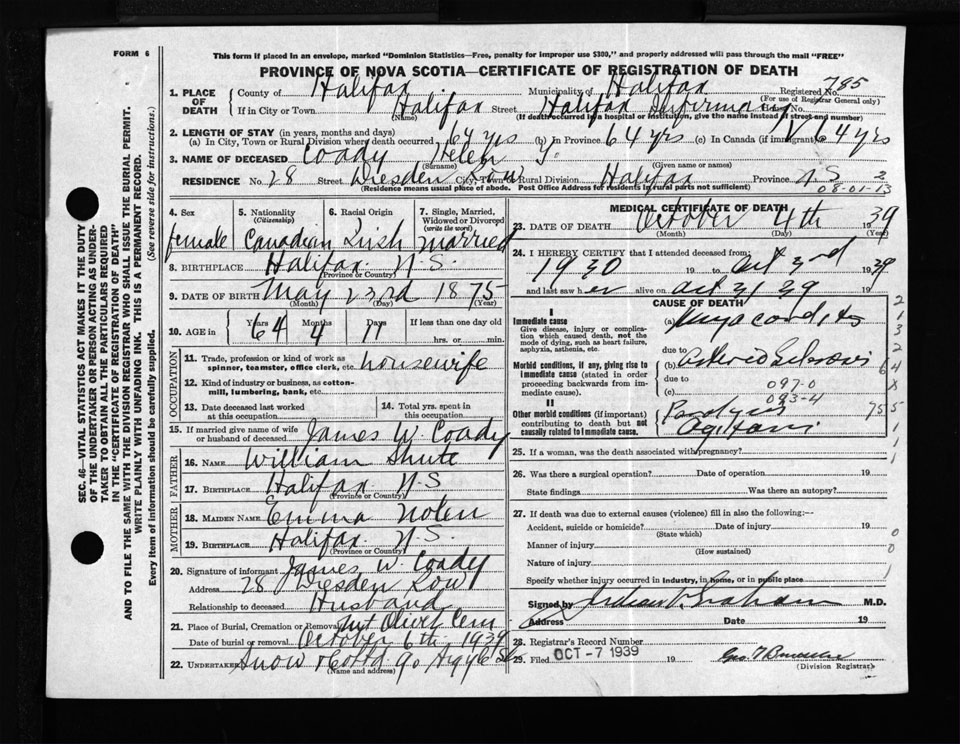 FORM 6
This form if placed in an envelope, marked "Dominion Statistics—Free, penalty for improper use $300," and properly addressed will pass through the mail "FREE"
PROVINCE OF NOVA SCOTIA—CERTIFICATE OF REGISTRATION OF DEATH
SEC. 46—VITAL STATISTICS ACT MAKES IT THE DUTY
OF THE UNDERTAKER OR PERSON ACTING AS UNDER-
TAKER TO OBTAIN ALL THE PARTICULARS REQUIRED
IN THE "CERTIFICATE OF REGISTRATION OF DEATH"
AND TO FILE THE SAME WITH THE DIVISION REGISTRAR WHO SHALL ISSUE THE BURIAL PERMIT.
WRITE PLAINLY WITH UNFADING INK. THIS IS A PERMANENT RECORD.
Every item of information should be carefully supplied. (See reverse side for instructions.)
1. PLACE OF DEATH County of Halifax Municipality of Halifax Registered No. 785
(For use of Registrar General only)
If in City or Town Halifax Street Halifax Infirmary House No.
(Name) (If death occurred in a hospital or institution, give the name instead of street and number)
2. LENGTH OF STAY (in years, months and days)
(a) In City, Town or Rural Division where death occurred 64 yrs (b) In Province 64 yrs (c) In Canada (if immigrant) 64 yrs
3. NAME OF DECEASED Coady Helen J.
(Surname) (Given name or names)
RESIDENCE No. 28 Street Dresden Row City, Town or Rural Division Halifax Province N.S. 2
(Residence means usual place of abode. Post Office Address for residents in rural parts not sufficient) 08-01-13
4. Sex 5. Nationality (Citizenship) 6. Racial Origin 7. Single, Married, Widowed or Divorced (write the word)
female Canadian Irish married
8. BIRTHPLACE Halifax N.S.
(Province or Country)
9. DATE OF BIRTH May 23rd 1875
(Month) (Day) (Year)
10. AGE in Years 64 Months 4 Days 11 If less than one day old
hrs. or min.
OCCUPATION
11. Trade, profession or kind of work as spinner, teamster, office clerk, etc. housewife
12. Kind of industry or business, as cotton-mill, lumbering, bank, etc.
13. Date deceased last worked at this occupation 14. Total yrs. spent in this occupation
15. If married give name of wife or husband of deceased James W. Coady
FATHER
16. NAME William Shute
17. BIRTHPLACE Halifax N.S
(Province or Country)
MOTHER
18. MAIDEN NAME Emma Nolen
19. BIRTHPLACE Halifax N.S.
(Province or Country)
20. Signature of informant James W. Coady
Address 28 Dresden Row
Relationship to deceased Husband
21. Place of Burial, Cremation or Removal Mt Olivet Cem
Date of burial or removal October 6th 1939
22. Undertaker Snow & Co Ltd 90 Argyle St
(Name and address)
MEDICAL CERTIFICATE OF DEATH
23. DATE OF DEATH October 4th 1939
(Month) (Day) (Year)
24. I HEREBY CERTIFY that I attended deceased from
1930 19 to Oct 3rd 1939
and last saw her alive on Oct 3/39 19
CAUSE OF DEATH
I
Immediate cause
Give disease, injury or complication which caused death, not the mode of dying, such as heart failure, asphyxia, asthenia, etc.
(a) Myocarditis
due to
Morbid conditions, if any, giving rise to immediate cause (stated in order proceeding backwards from immediate cause).
(b) Arterio Sclerosis
due to
(c) 097-0
093-4
II
Other morbid conditions (if important) contributing to death but not causally related to immediate cause.
Paralysis
Agitans
2
1
3
2
64
8
755
1
1
25. If a woman, was the death associated with pregnancy?
26. Was there a surgical operation? Date of operation 19
State findings Was there an autopsy?
27. If death was due to external causes (violence) fill in also the following:—
Accident, suicide or homicide? Date of injury 19
(State which)
Manner of injury
(How sustained)
Nature of injury
Specify whether injury occurred in industry, in home, or in public place
0
0
1
Signed by Graham M.D.
Address Date 19
28. Registrar's Record Number
29. Filed OCT -7 1939 19
(Division Registrar)